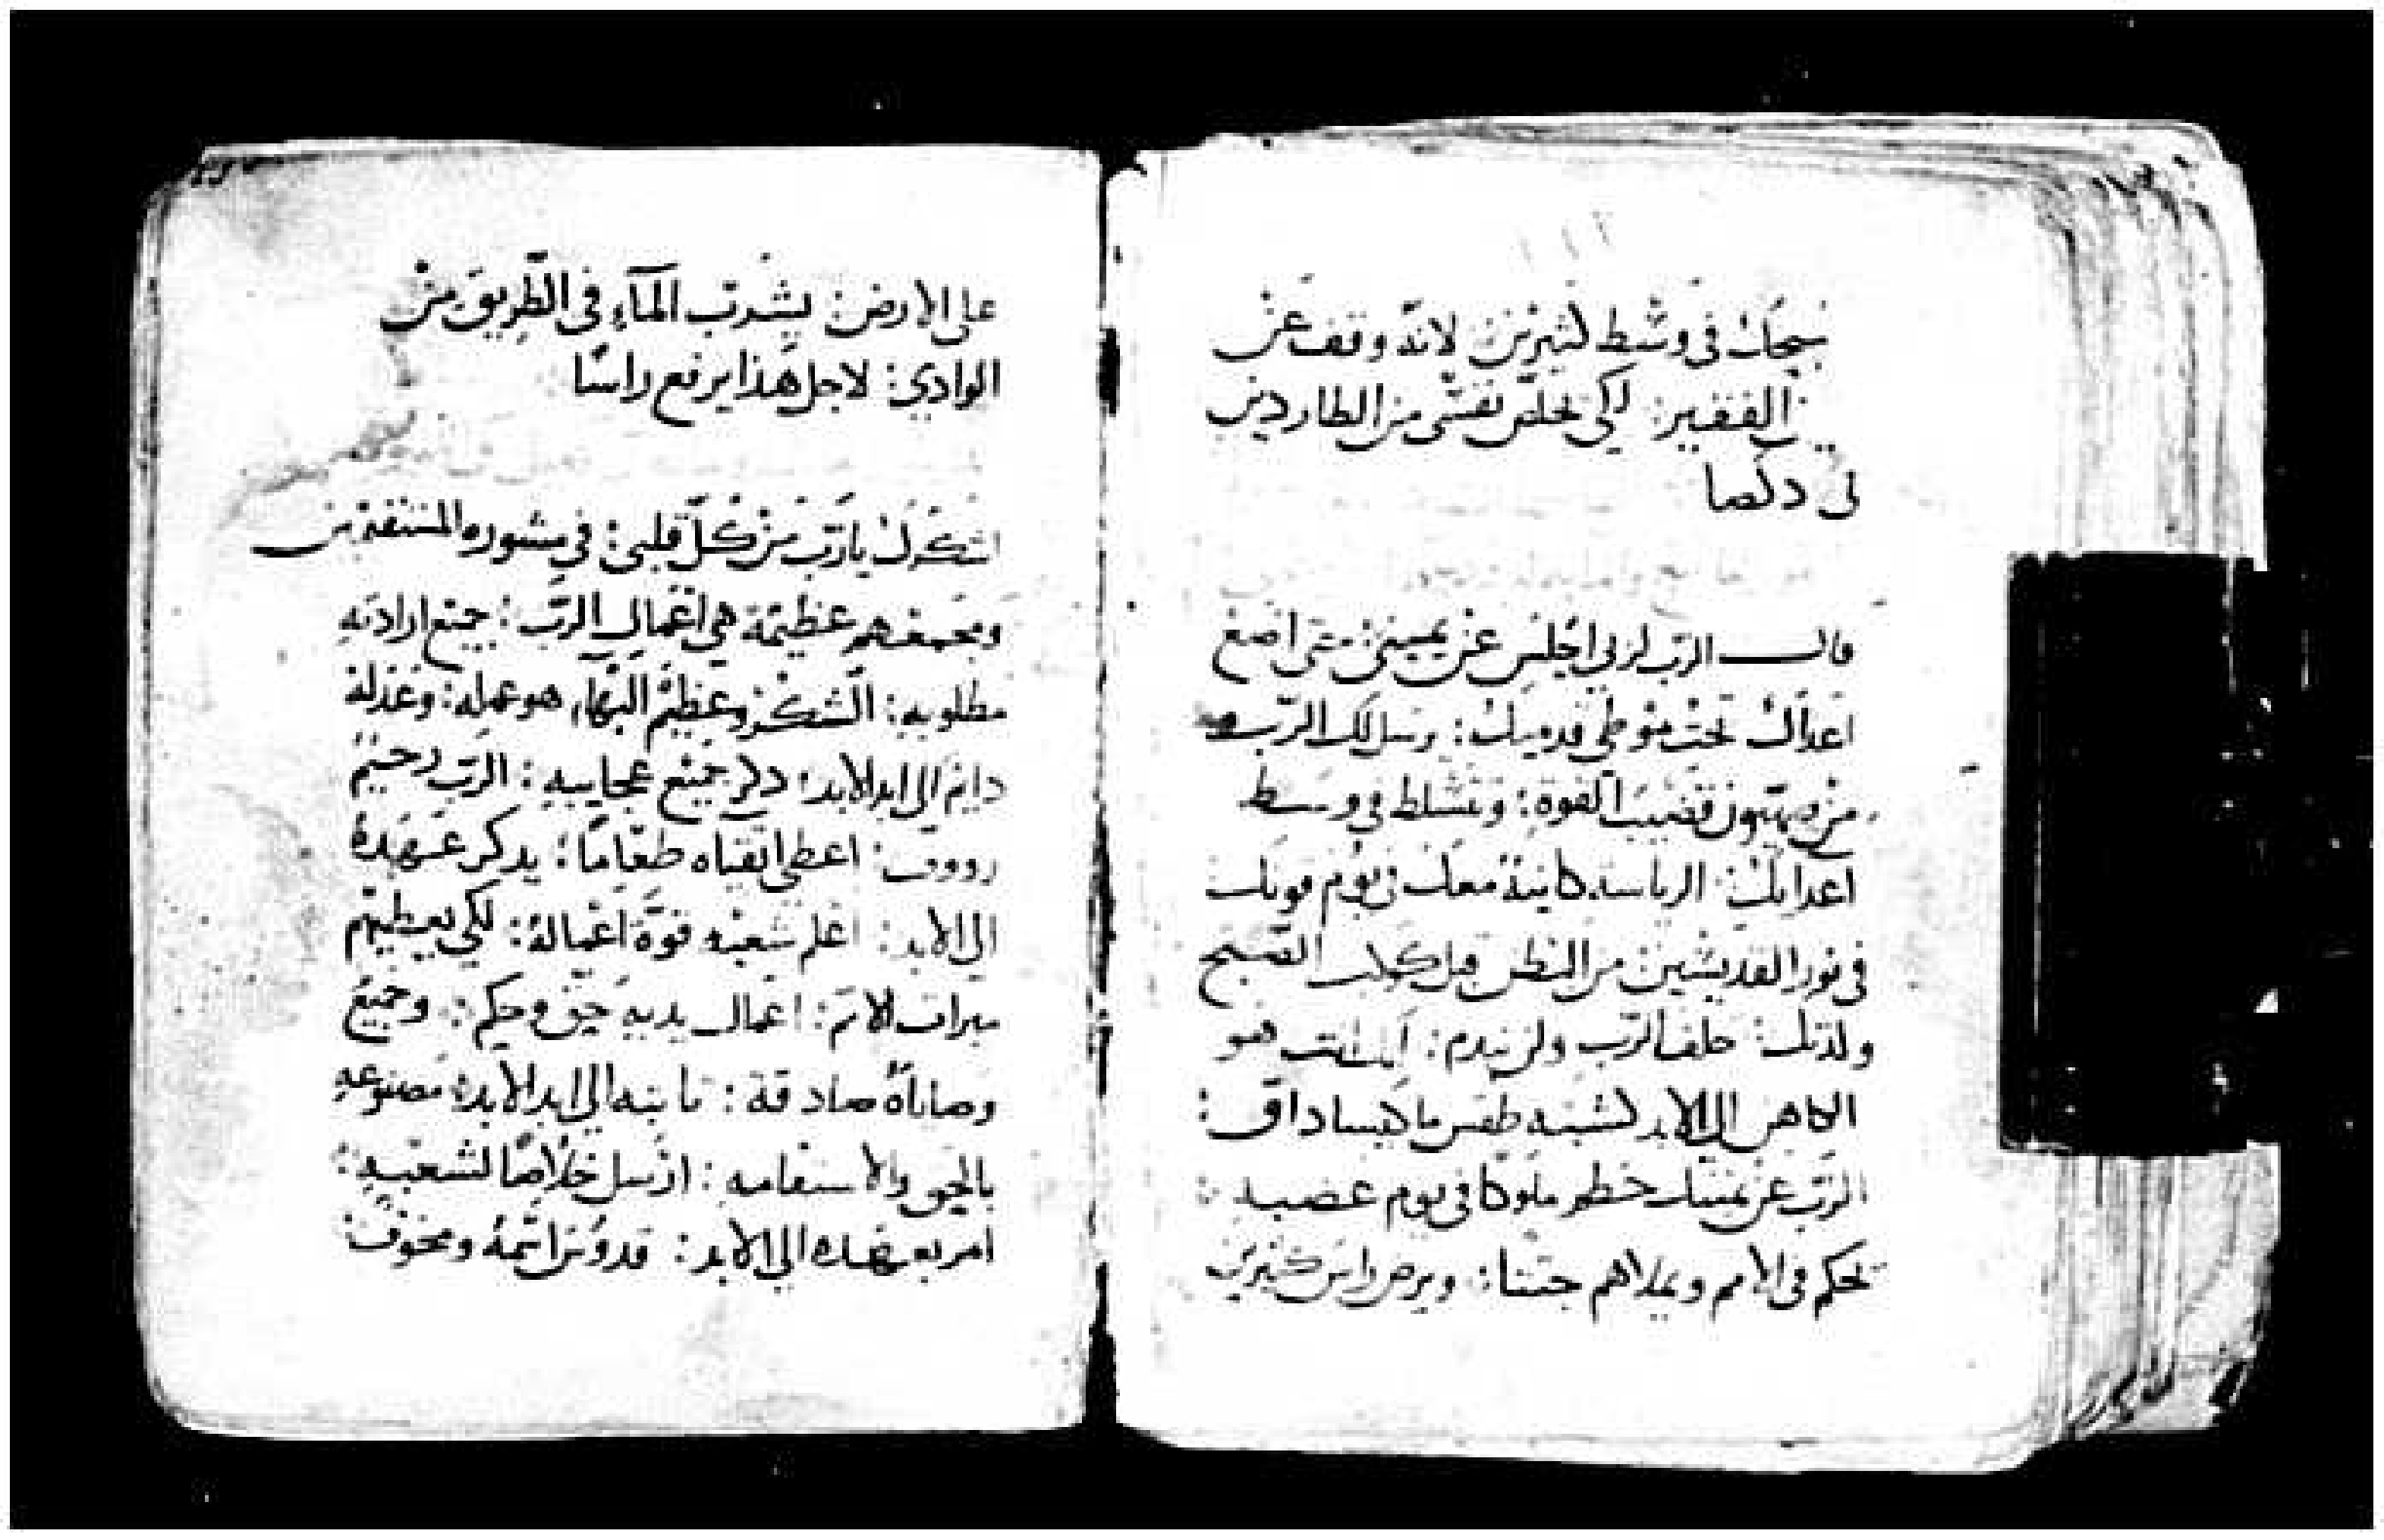 نسبحك فى وسط كثيرين لانه وقف عن
الفقير: لكي يخلص نفسى من الطاردين
قال الرب لربي اجلس عن يميني: متى اضع
اعداك تحت موطي قدميك: يرسل لك الرب
من صهيون قضيب القوة: وتتسلط في وسط
اعدايك: الرياسه كاينة معك في يوم قوتك
في نور القديسين من البطن قبل كوكب الصبح
ولدتك: حلف الرب ولن يندم: انك انت هو
الكاهن الى الابد لشبه طقس ملكيساداق:
الرب عن يمينك حطم ملوكا في يوم غضبه:
يحكم في الامم ويملاهم جثثا: ويرض راس كثيرين
على الارض: يشرب المآء في الطريق من
الوادي: لاجل هذا يرفع راسًا
اشكرك يا رب من كل قلبي: في مشوره المستقيمين
ومجمعهم عظيمة هي اعمال الرب: جميع ارادته
مطلوبه: الشكر وعظيم البهاء هو عمله: وعدله
دايم الى ابد الابد: ذكر جميع عجايبه: الرب رحيم
رووف: اعطى اتقياه طعامًا: يذكر عهده
الى الابد: اعلم شعبه قوة اعماله: لكي يعطيهم
ميراث الامم: اعمال يديه حق وحكم: وجميع
وصاياه صادقة: ثابته الى ابد الابد: مصنوعه
بالحق والاستقامه: ارسل خلاصًا لشعبه:
امر بعهده الى الابد: قدوس اسمه ومخوف: